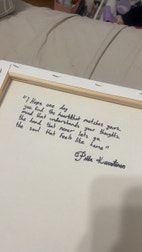 "I Hope one day
you find the heartbeat matches yours.
mind that understands your thoughts.
the hand that never lets go.
the soul that feels like home"